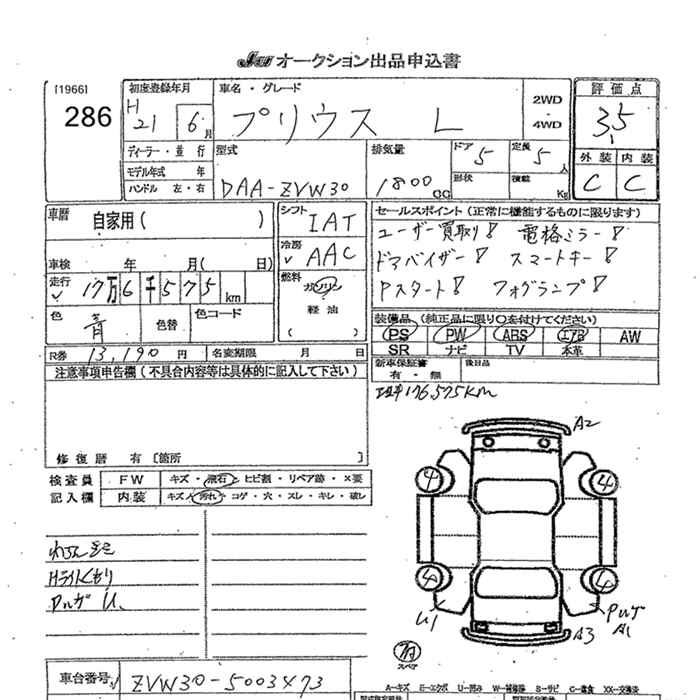 JAA オークション出品申込書
[1966]
286
初度登録年月
H
21 6月
車名・グレード
プリウス L
2WD
4WD
評価点
3.5
外装 内装
C C
ディーラー・並行
モデル年式 年
ハンドル 左・右
型式
DAA-ZVW30
排気量
1800 CC
ドア 5
定員 5人
形状
積載 Kg
車歴 自家用( )
車検 年 月( 日)
走行 17万6千575km
色 青
色替
色コード
シフト IAT
冷房 AAC
燃料 ガソリン
軽油
( )
セールスポイント(正常に機能するものに限ります)
ユーザー買取り! 電格ミラー!
ドアバイザー! スマートキー!
Pスタート! フォグランプ!
装備品(純正品に限り〇を付けてください)
PS PW ABS エアB AW
SR ナビ TV 本革
R券 13,190円
名変期限 月 日
新車保証書
有・無
後日品
176,575km
注意事項申告欄(不具合内容等は具体的に記入して下さい)
修復歴 有 [箇所 ]
検査員
記入欄
FW キズ・飛石・ヒビ割・リペア跡・×要
内装 キズ・汚れ・コゲ・穴・スレ・キレ・破レ
Hライトくもり
A2
4 4
4 4
U1
A1
A3
スペア
車台番号 ZVW30-5003473
A=キズ E=エクボ U=凹み W=補修跡 S=サビ C=腐食 XX=交換済